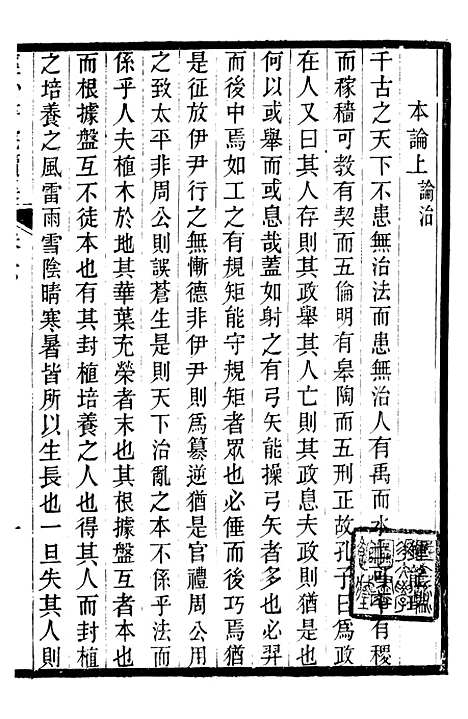 本論上 論治
千古之天下不患無治法而患無治人有禹而水土可平有稷
而稼穡可教有契而五倫明有皋陶而五刑正故孔子曰爲政
在人又曰其人存則其政舉其人亡則其政息夫政舉息也
何以或舉而或息哉蓋如射之有弓矢能操弓矢者多也必羿
而後中焉如工之有規矩能守規矩者眾也必倕而後巧焉猶
是征放伊尹行之無慚德非伊尹則爲篡逆猶是官禮周公用
之致太平非周公則誤蒼生是則天下治亂之本不係乎法而
係乎人夫植木於地其華葉充榮者末也其根據盤互者本也
而根據盤互不徒本也有其封植培養之人也得其人而封植
之培養之風雷雨雪陰晴寒暑皆所以生長也一旦失其人則
一